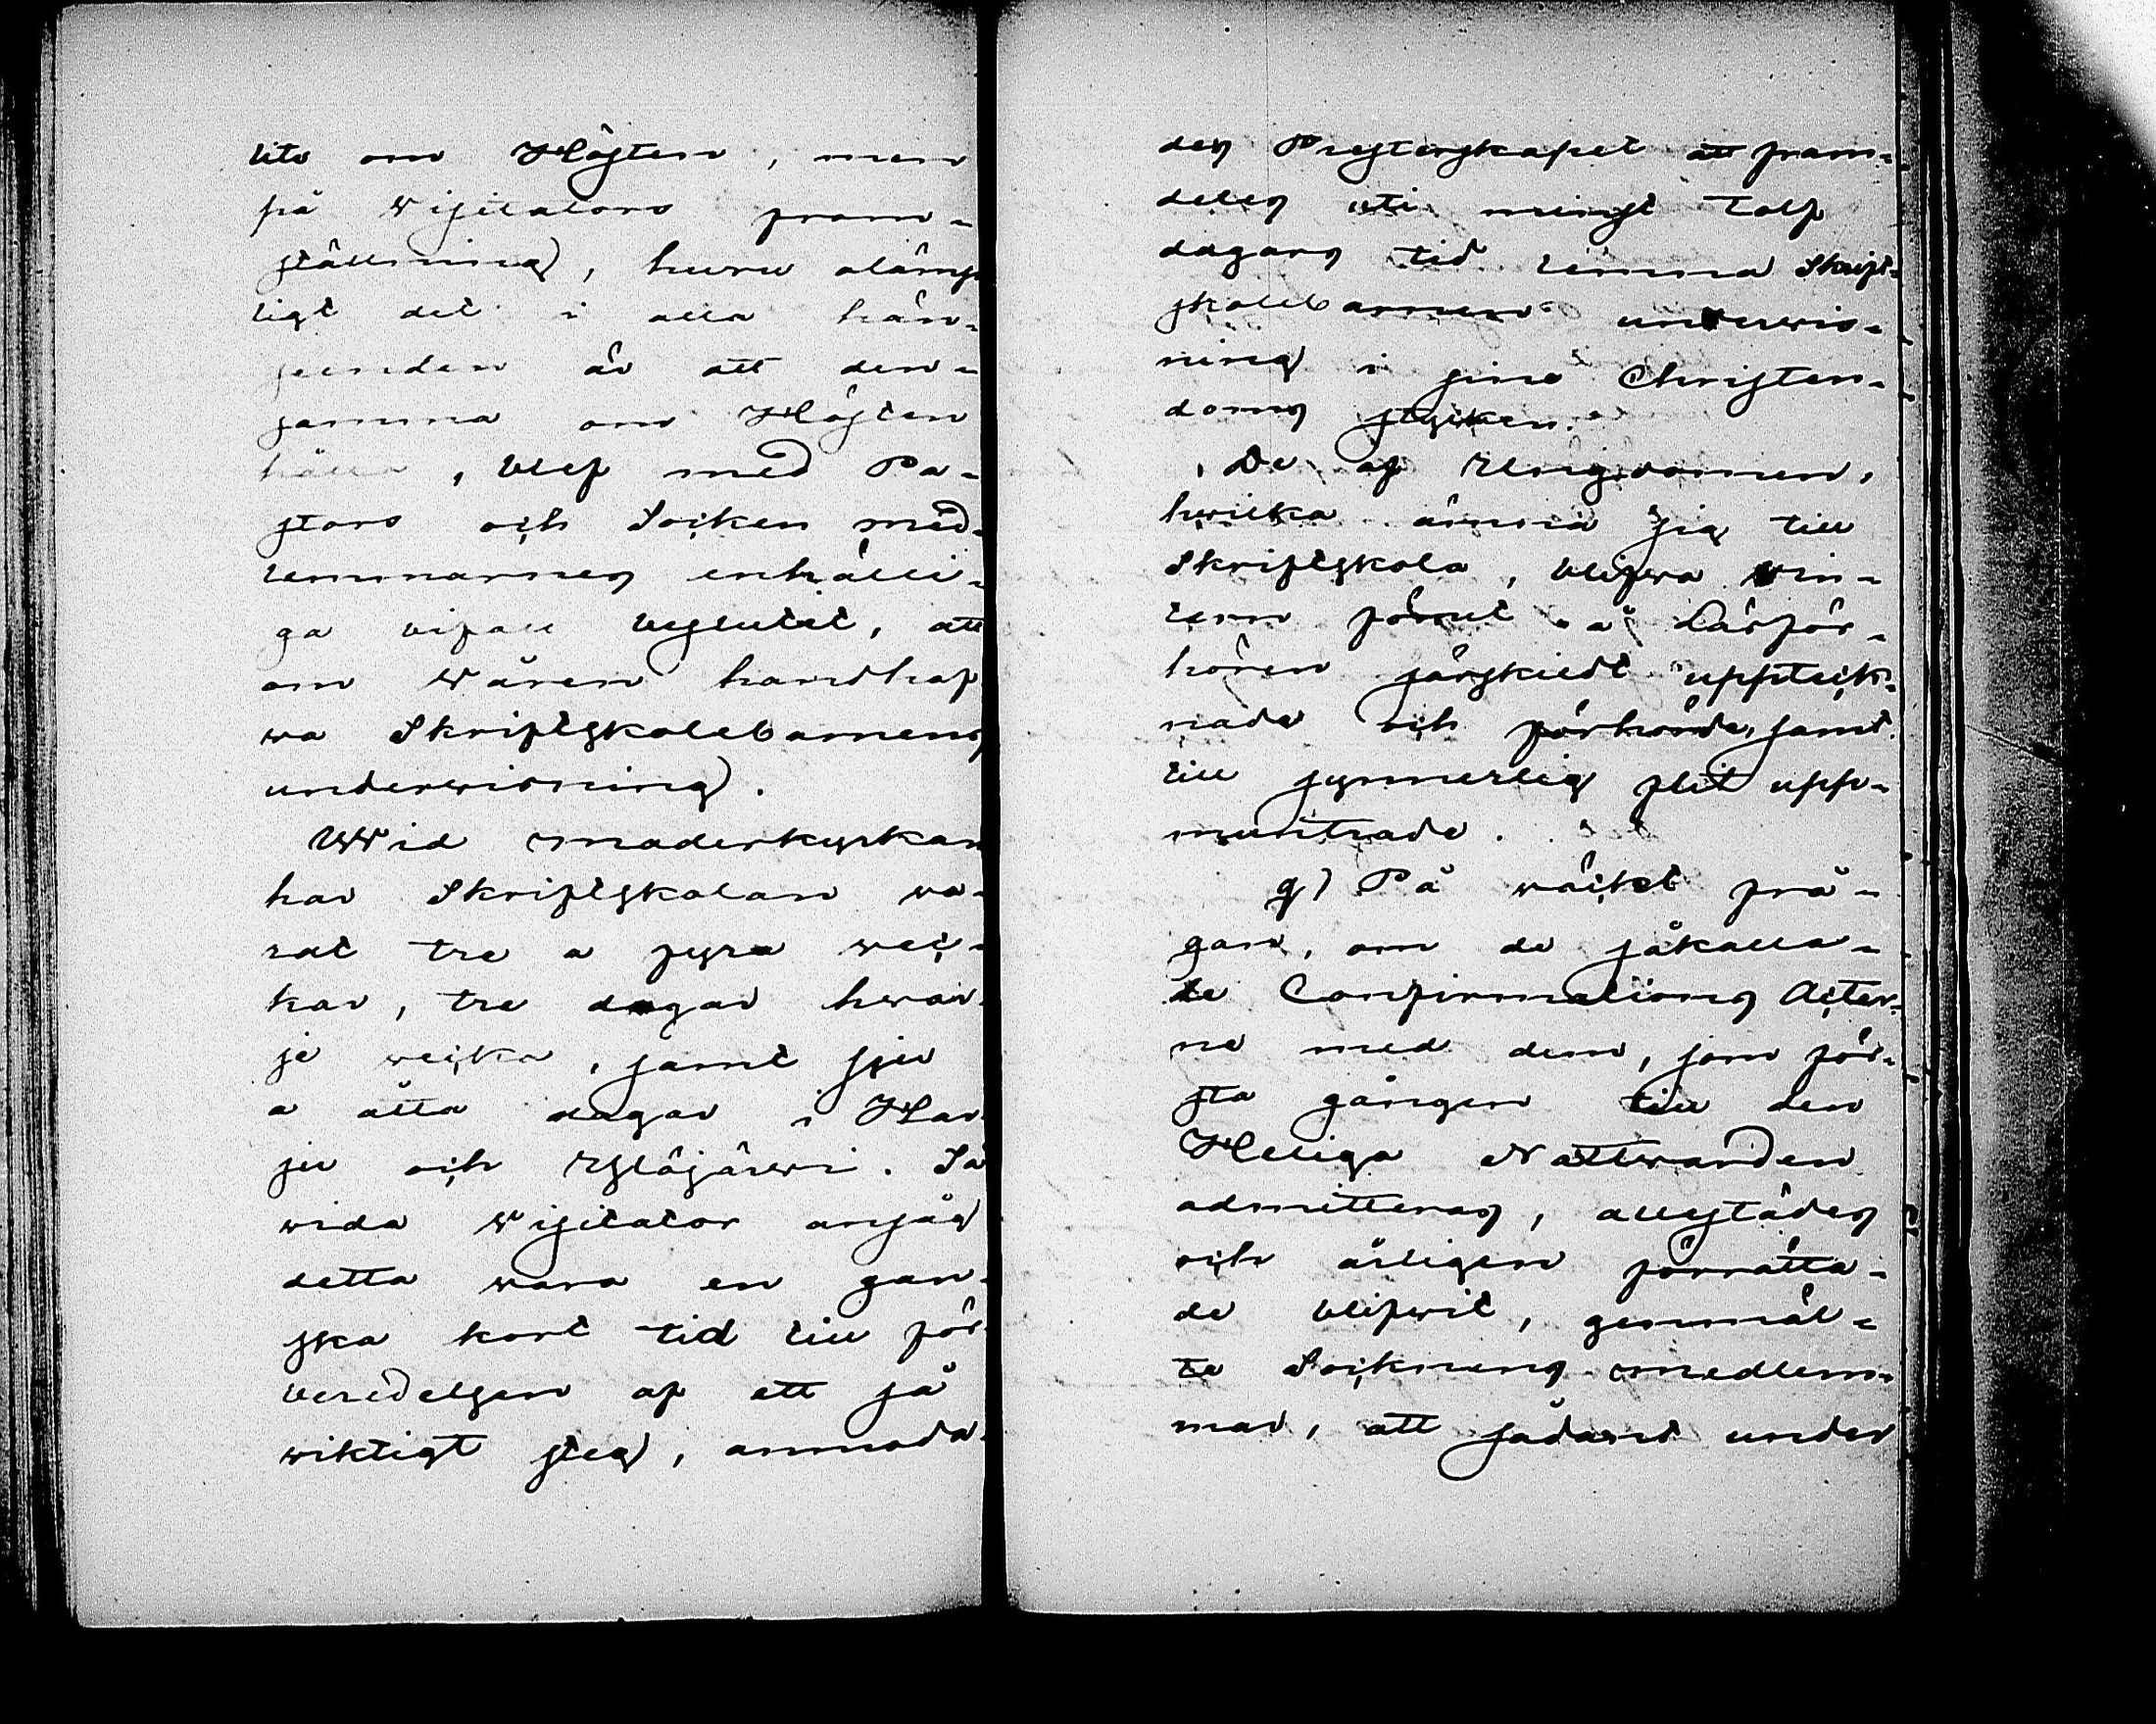 lito om Hösten, men
på Visitators fram-
ställning, huru olämp
ligt det i alla hän-
seenden är att den-
samma om Hösten
hålla, blef med Pa-
stors och Socken med-
lemmarnes enhälli-
ga bifall beslutit, att
om Våren handhaf
wa Skriftskolebarnens
underwisning.
Wid moderkyrkan
har Skriftskolan wa-
rat tre a fyra wec-
kor, tre dagar hwar-
je wecka, samt sju
a åtta dagar i Har-
ju och Ylöjärwi. Så
wida Visitator ansåg
detta wara en gan-
ska kort tid till för
beredelsen af ett så
wiktigt steg, anmoda-
des Presterskapet att fram-
deles uti minst tolf
dagars tid lemna Skrift-
skolebarnen underwis-
ning i sine Christen-
doms stycken.
De af Ungdomen,
hwilka ämna sig till
Skriftskola, blifwa win-
tern förut å Läsför-
hören särskildt uppteck-
nade och förhörde, samt
till synnerlig flit upp-
muntrade.
g) På wäckt frå-
gan, om de såkalla-
de Confirmations Acter-
ne med dem, som för-
sta gången till den
Heliga Nattwarden
admitteras, allestädes
och årligen förrätta-
de blifwit, genmäl-
te Socknens medlem-
mar, att sådant under